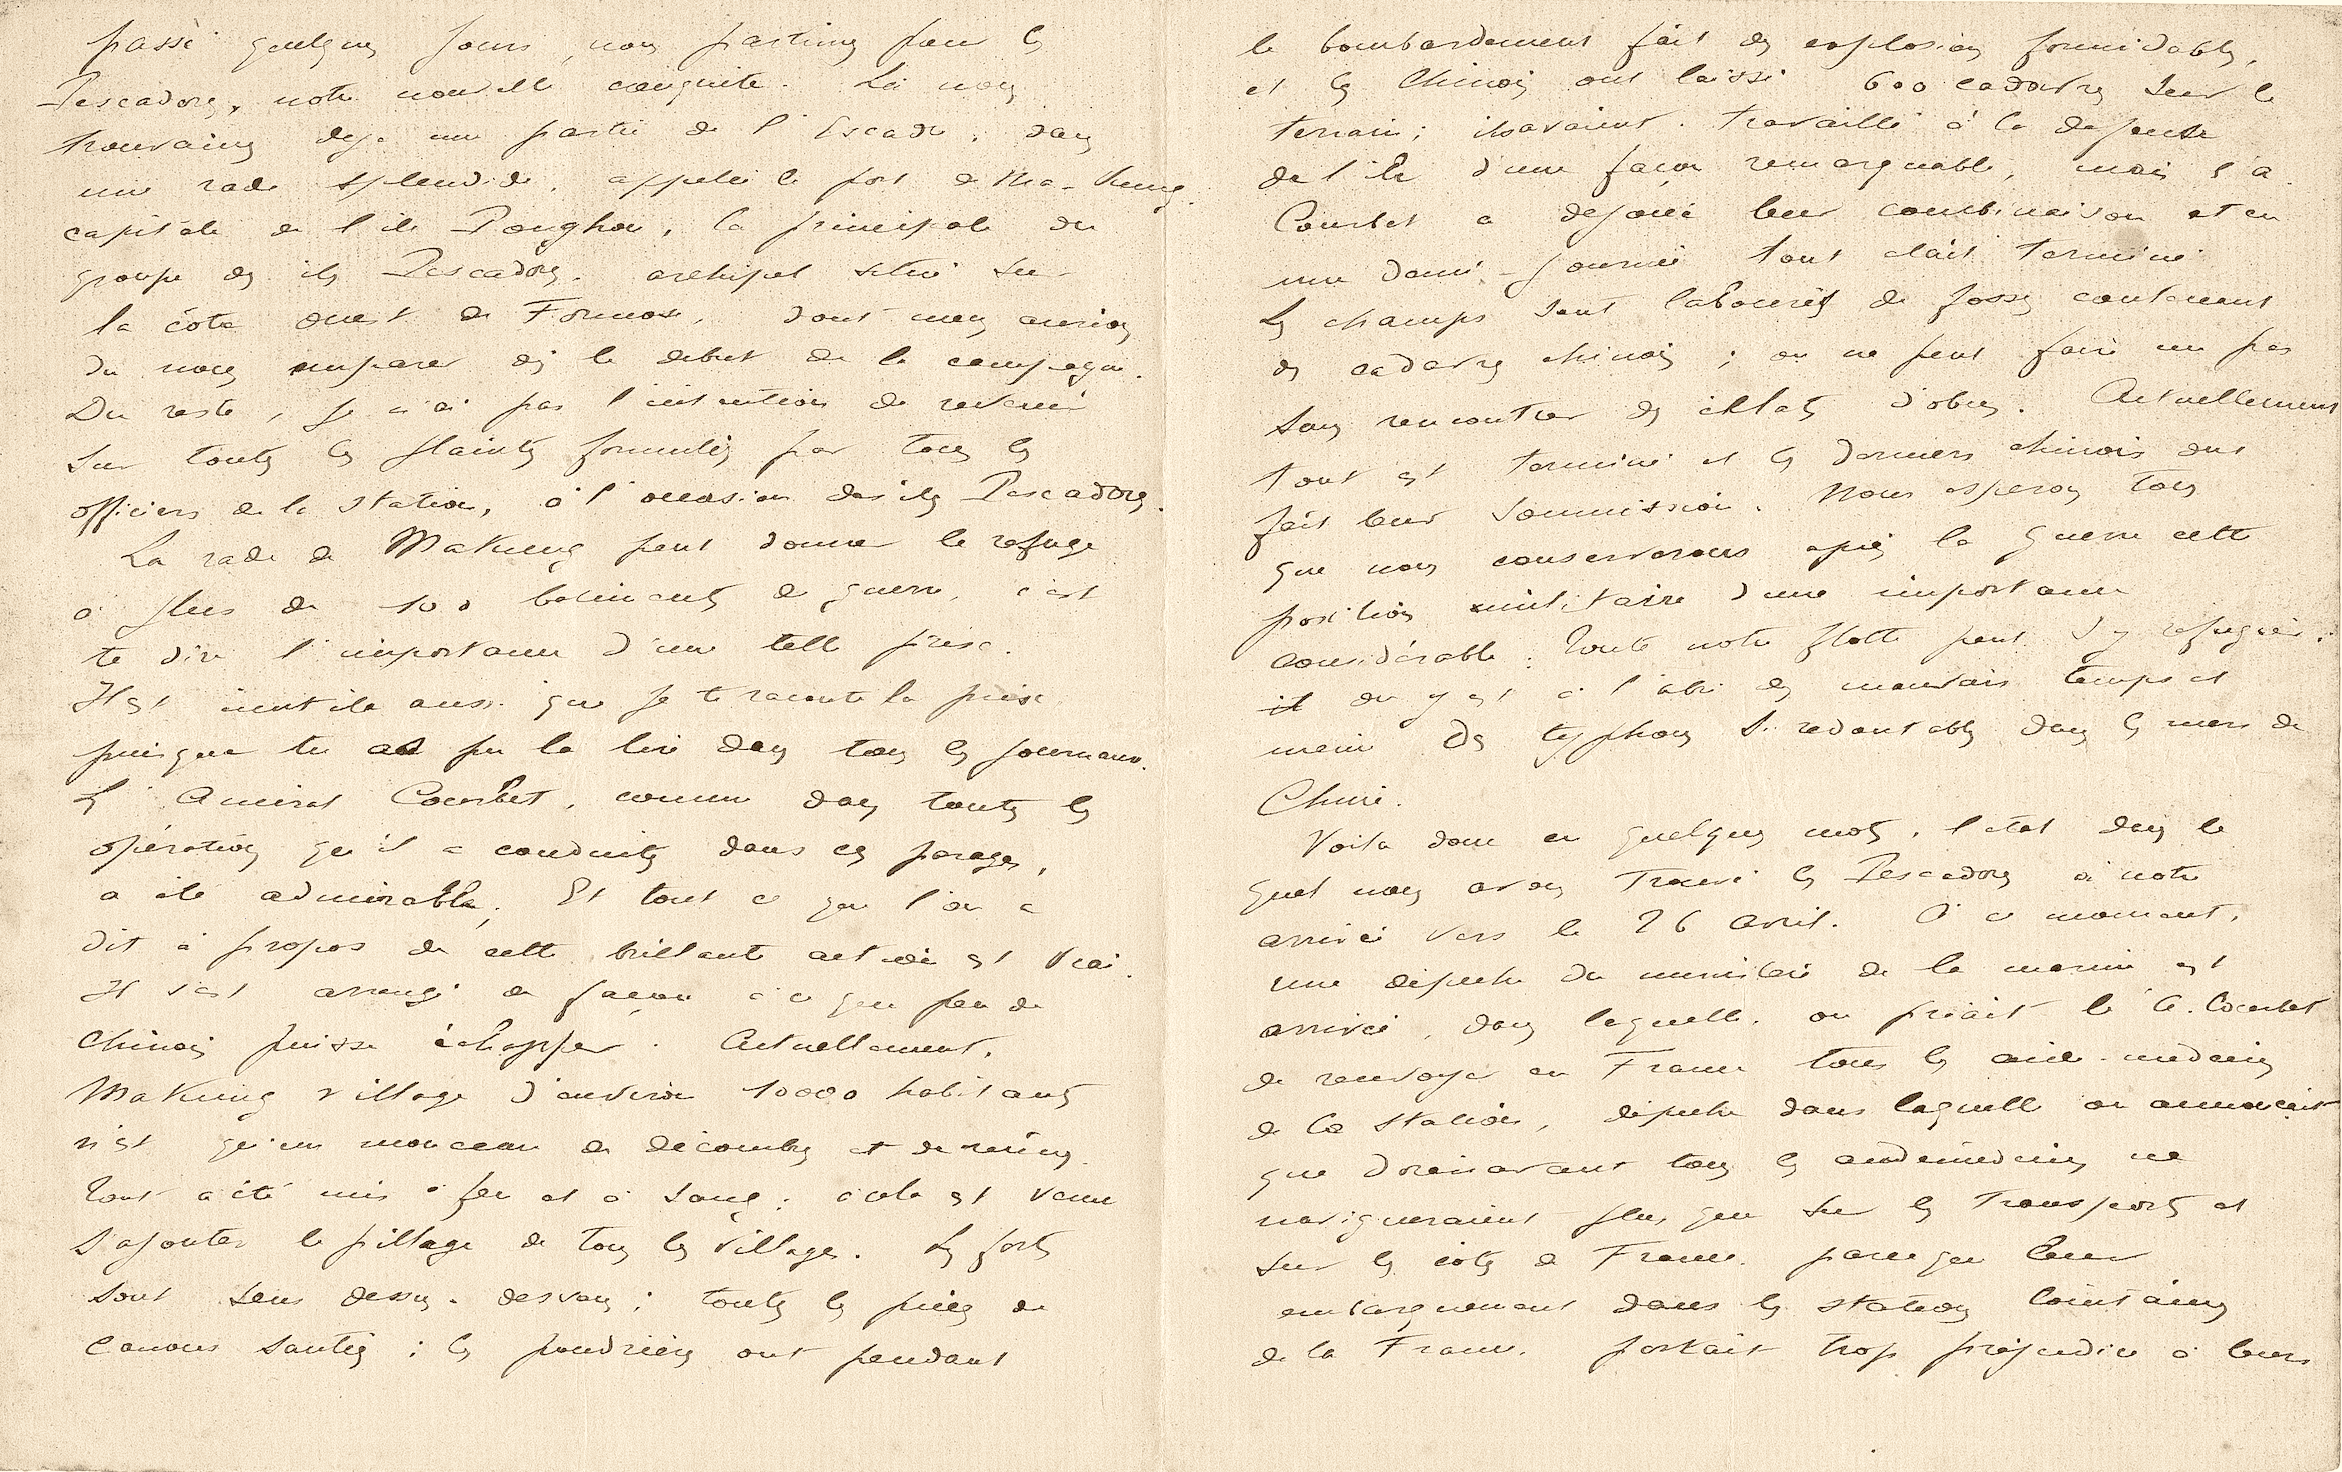 passé quelques jours, nous partimes pour les
Pescadores, notre nouvelle conquête. Là nous
trouvâmes déjà une partie de l'Escadre, dans
une rade splendide, appelée le port de Ma-Kung.
capitale de l'île Ponghou, la principale du
groupe des îles Pescadores, archipel situé sur
la côte ouest de Formose, dont nous aurions
du nous emparer dès le debut de la campagne.
Du reste, je n'ai pas l'intention de revenir
sur toutes les plaintes formulées par tous les
officiers de la station, à l'occasion des îles Pescadores.
La rade de Makung peut donner le refuge
à plus de 100 batiments de guerre, c'est
te dire l'importance d'une telle prise.
Il est inutile aussi que je te raconte la prise
puisque tu as pu la lire dans tous les journaux.
L'Amiral Courbet, comme dans toutes les
opérations qu'il a conduites dans ces parages,
a été admirable. Et tout ce que l'on a
dit à propos de cette brillante action est vrai.
Il s'est arrangé de façon à ce que peu de
Chinois puisse échapper. Actuellement,
Makung village d'environ 10000 habitants
n'est qu'un monceau de décombres et de ruines.
Tout a été mis à feu et à sang; à cela est venu
s'ajouter le pillage de tous les villages. Les forts
sont sens dessus-dessous; toutes les pièces de
canons sautées; les poudrières ont pendant
le bombardement fait des explosions formidables,
et les Chinois ont laissé 600 cadavres sur le
terrain; ils avaient travaillé à la defense
de l'île d'une façon remarquable, mais l'A.
Courbet a dejoué leur combinaison et en
une demi-journée tout était terminé.
Les champs sont labourés de fosses contenant
des cadavres chinois; on ne peut faire un pas
sans rencontrer des éclats d'obus. Actuellement
tout est terminé et les derniers chinois ont
fait leur soumission. Nous esperons tous
que nous conserverons après la guerre cette
position militaire d'une importance
considérable. Toute notre flotte peut s'y refugier;
il on y est à l'abri des mauvais temps et
meme des typhons si redoutables dans les mers de
Chine.
Voila donc en quelques mots, l'etat dans le
quel nous avons trouvé les Pescadores à notre
arrivée vers le 26 avril. A ce moment,
une dépeche du ministère de la marine est
arrivée, dans laquelle on priait le A. Courbet
de renvoyer en France tous les aide-medecins
de la station, dépeche dans laquelle on annonçait
que dorénavant tous les aidemédecins ne
navigueraient plus que sur les transports et
sur les côtes de France, parce que leur
embarquement dans les stations lointaines
de la France, portait trop préjudice à leurs